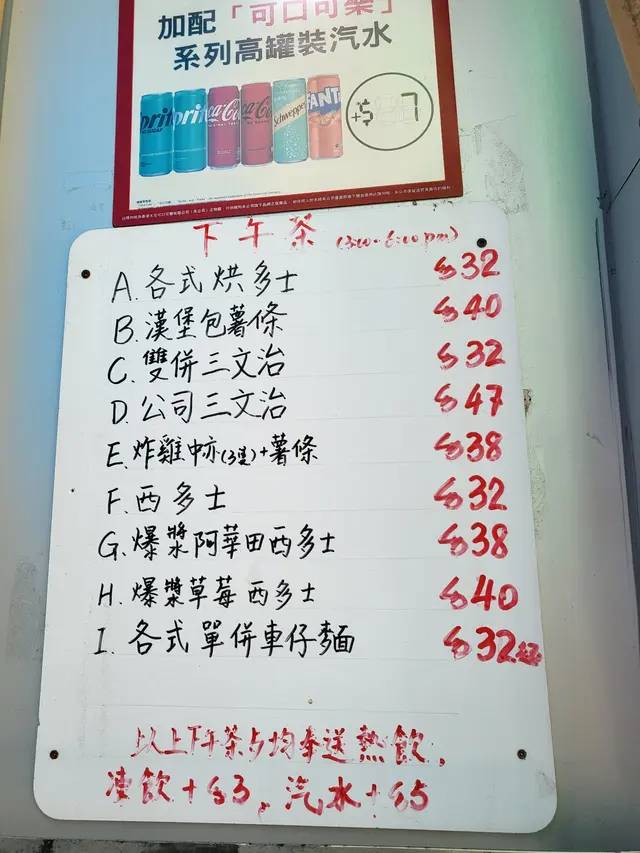 加配「可口可樂」
系列高罐裝汽水
Coca-Cola
Schweppes
FANTA
+$ 7
下午茶 (3:00-6:00pm)
A. 各式烘多士 $32
B. 漢堡包薯條 $40
C. 雙併三文治 $32
D. 公司三文治 $47
E. 炸雞中亦(3隻)+薯條 $38
F. 西多士 $32
G. 爆漿阿華田西多士 $38
H. 爆漿草莓西多士 $40
I. 各式單併車仔麵 $32起
以上下午茶均奉送熱飲,
凍飲+$3, 汽水+$5